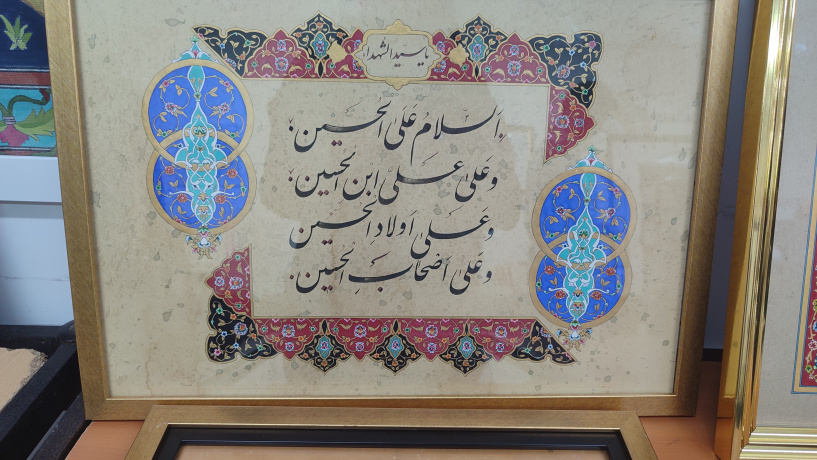 یا سید الشهداء
السلامُ عَلَی الحُسین
وَعَلیٰ عَلیِّ ابنِ الحُسین
وَعَلیٰ اَولادِ الحُسین
وَعَلیٰ اَصْحابِ الحُسین